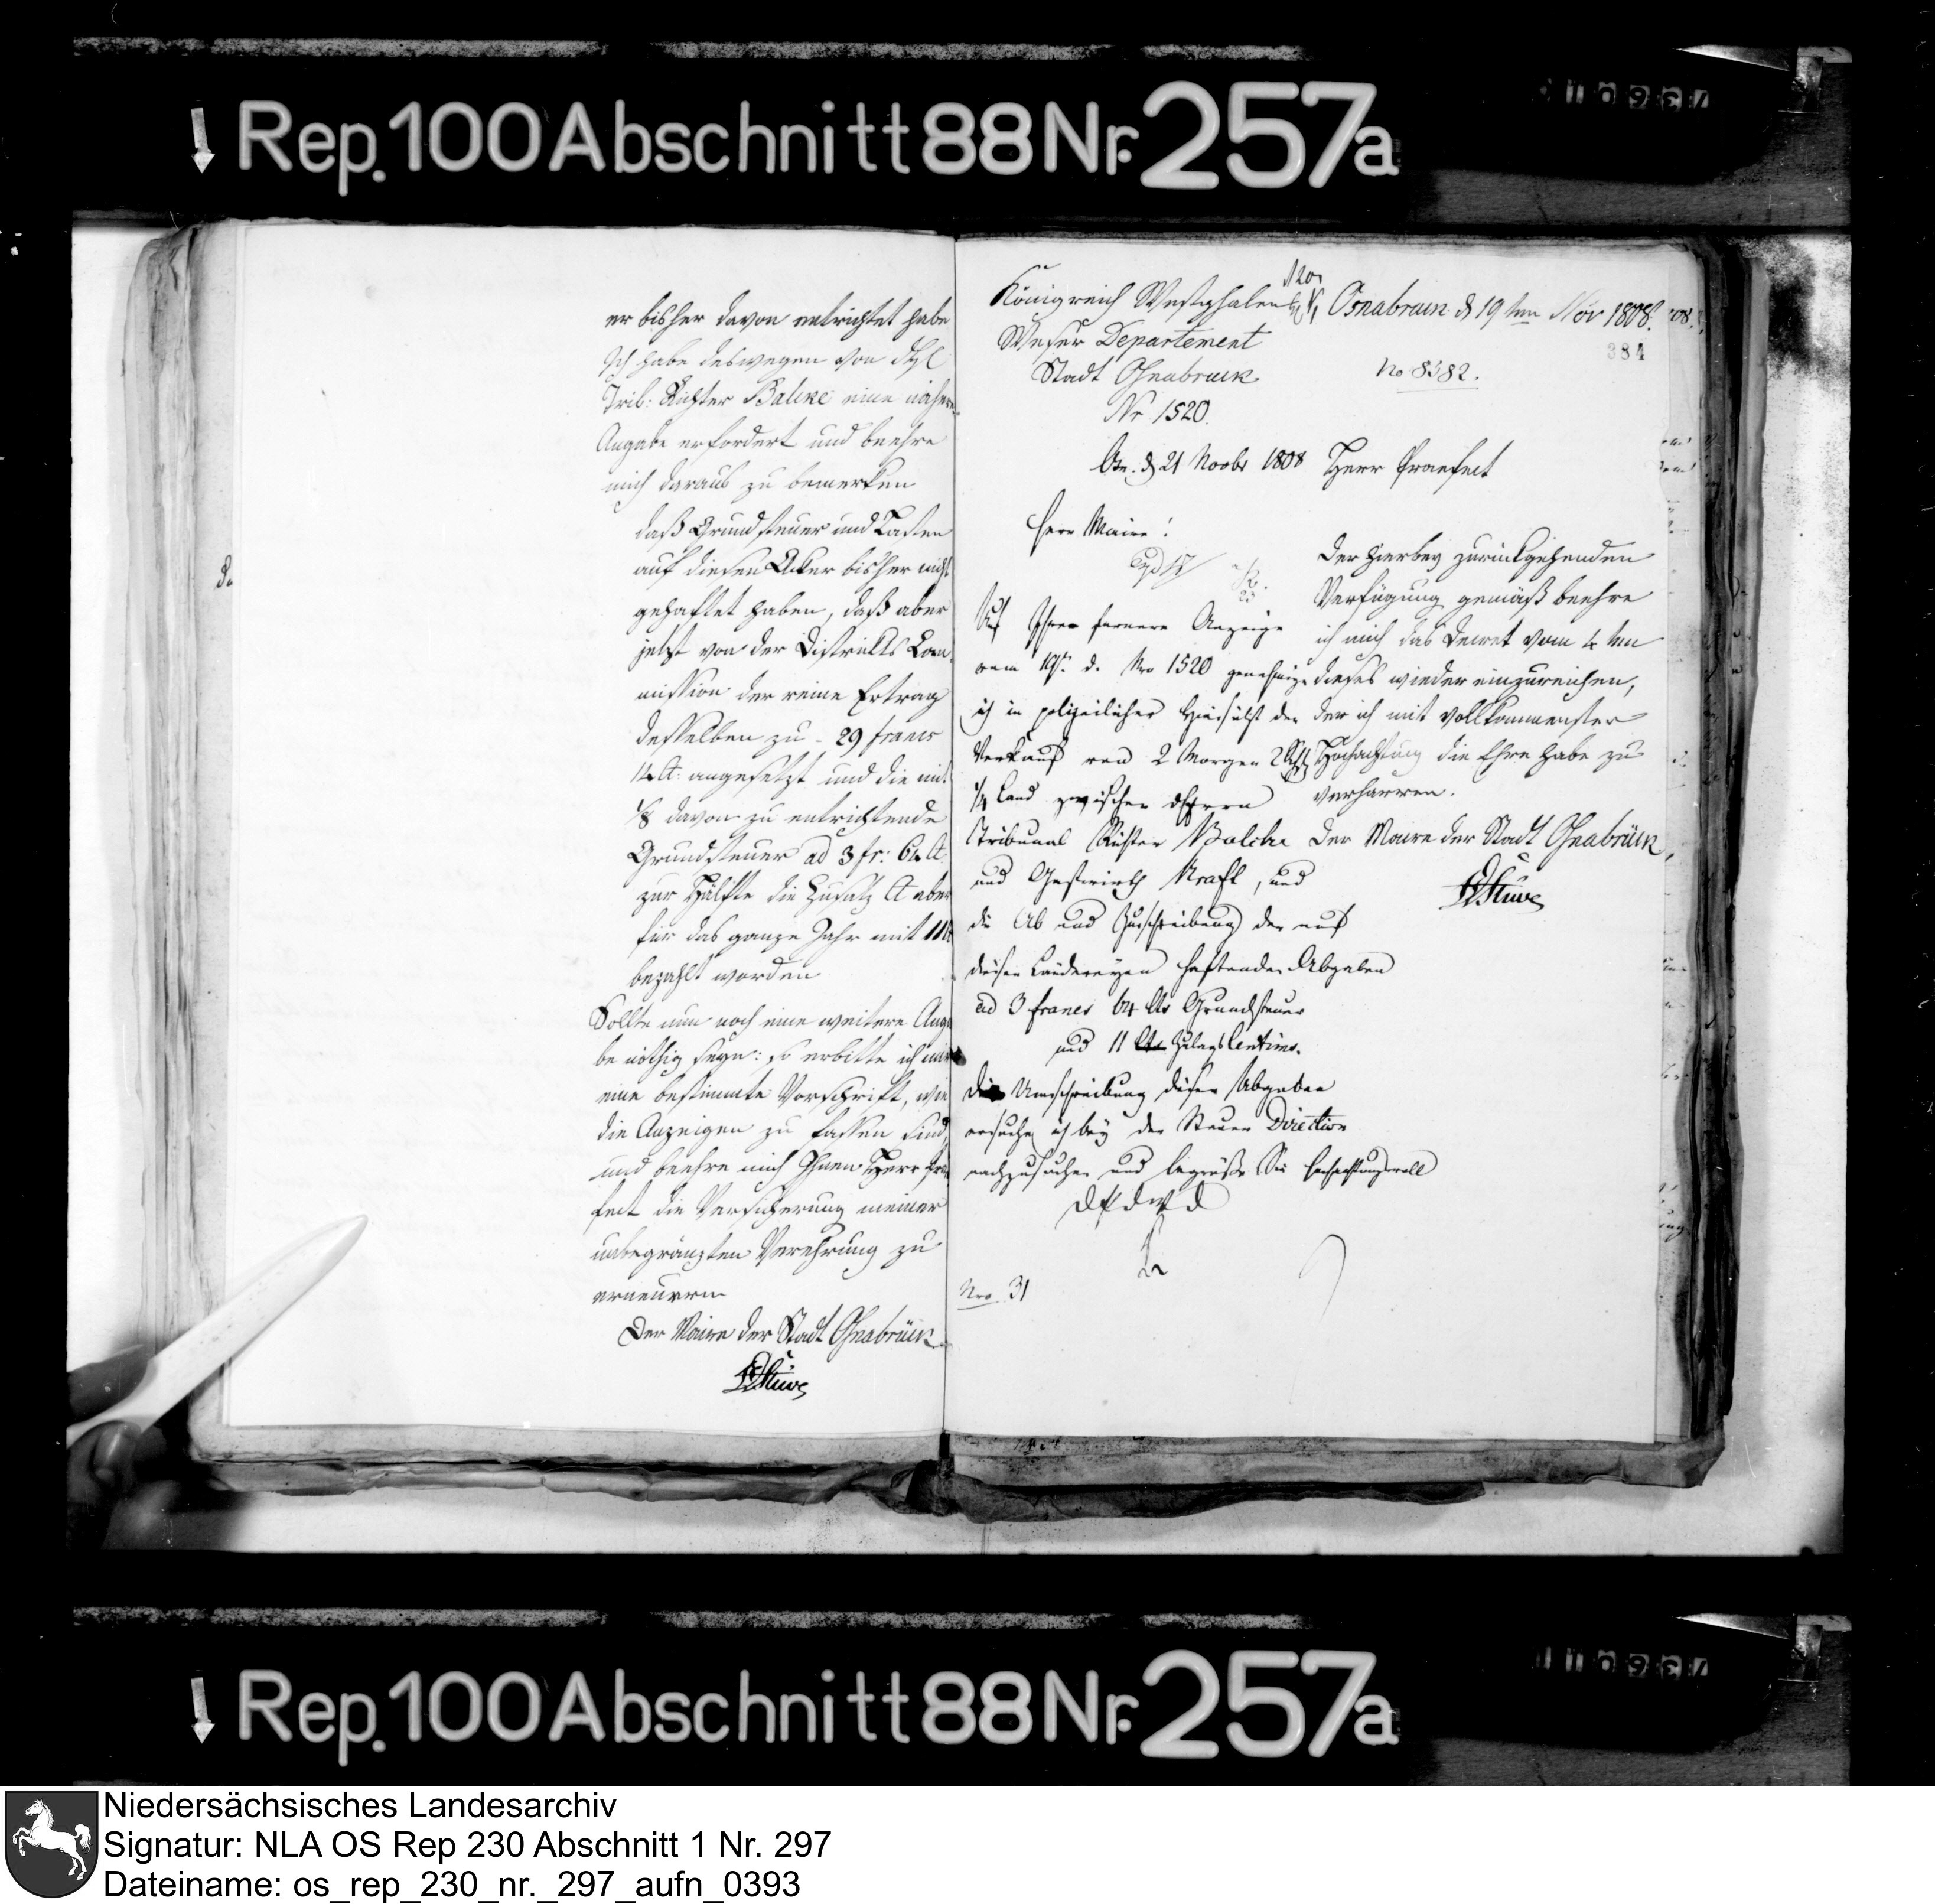 Rep. 100 Abschnitt 88 Nr. 257a
er bisher davon entrichtet habe
Ich habe deswegen von
Trib: Richter Balcke eine nähere
Angabe erfordert und beehre
mich daraus zu bemerken
daß Grundsteuer und Lasten
auf diesen Acker bisher nicht
gehaftet haben, daß aber
jetzt von der Districkts Com
mission der reine Ertrag
desselben zu - 29 francs
14 Ct: angesetzt und die mit
1/8 davon zu entrichtende
Grundsteuer ad 3 fr: 64 Ct
zur Hälfte die Zusatz Ct aber
für das ganze Jahr mit 11
bezahlt worden
Sollte nun noch eine weitere Anga
be nöthig seyn: so erbitte ich mir
eine bestimmte Vorschrift, wie
die Anzeigen zu fassen sind,
und beehre mich Ihnen Herr Prae
fect die Versicherung meiner
unbegränzten Verehrung zu
erneuern
Der Maire der Stadt Osnabrück
Stüve
Königreich Westphalen
Weser Departement
Stadt Osnabruck
Nr 1520.
Osnabruck d 19 ten Nov 1808.
384
No 8582.
Herr Praefect
Der hierbey zurückgehenden
Verfügung gemäß beehre
ich mich das Decret vom 4 ten
dieses wieder einzureichen,
der ich mit vollkommenster
Hochachtung die Ehre habe zu
verharren.
Der Maire der Stadt Osnabrück,
Stüve
Osn. d 21 Novbr 1808
Herr Maire!
Auf Ihre fernere Anzeige
vom 19t. d. Nro 1520 genehmige
ich in polizeilicher Hinsicht den
Verkauf von 2 Morgen 2
1/4 Land zwischen Herrn
Tribunal Richter Balcke
und Gastwirth Kraft, und
die Ab und Zuschreibung der auf
diesen Ländereyen haftenden Abgaben
ad 3 francs 64 Cts Grundsteuer
und 11 Zulags Centims.
Die Umschreibung dieser Abgaben
ersuche ich bey der Steuer Direction
nachzusuchen und begrüße Sie hochachtungsvoll
D P d W D
Nro 31
Rep. 100 Abschnitt 88 Nr. 257a
Niedersächsisches Landesarchiv
Signatur: NLA OS Rep 230 Abschnitt 1 Nr. 297
Dateiname: os_rep_230_nr._297_aufn_0393